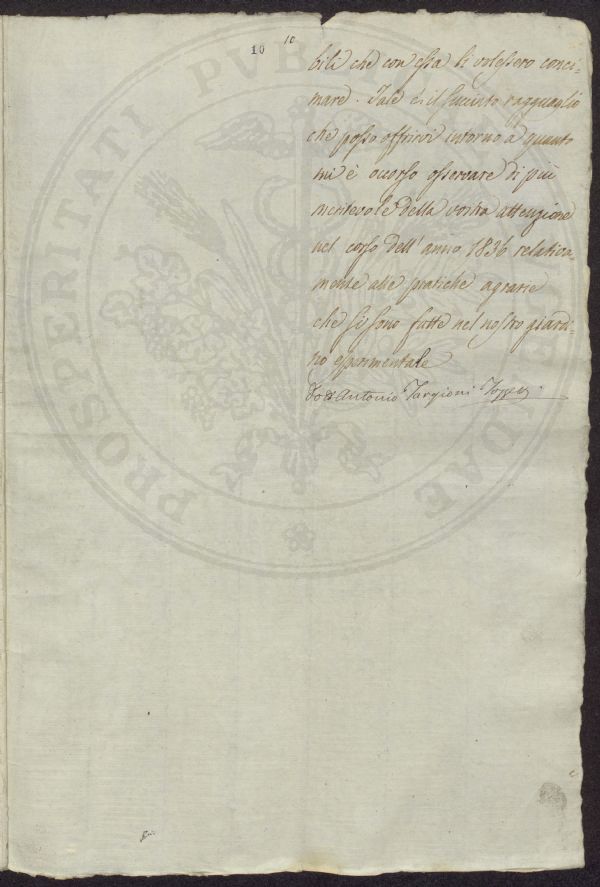 10 10
bili che con essa si volessero conci-
mare. Tale è il succinto ragguaglio
che posso offrirvi intorno a quanto
mi è occorso osservare di più
meritevole della vostra attenzione
nel corso dell'anno 1836 relativa-
mente alle pratiche agrarie
che si sono fatte nel nostro giardi-
no esperimentale
Dott Antonio Targioni Tozzetti
PROSPERITATI PVBLICAE